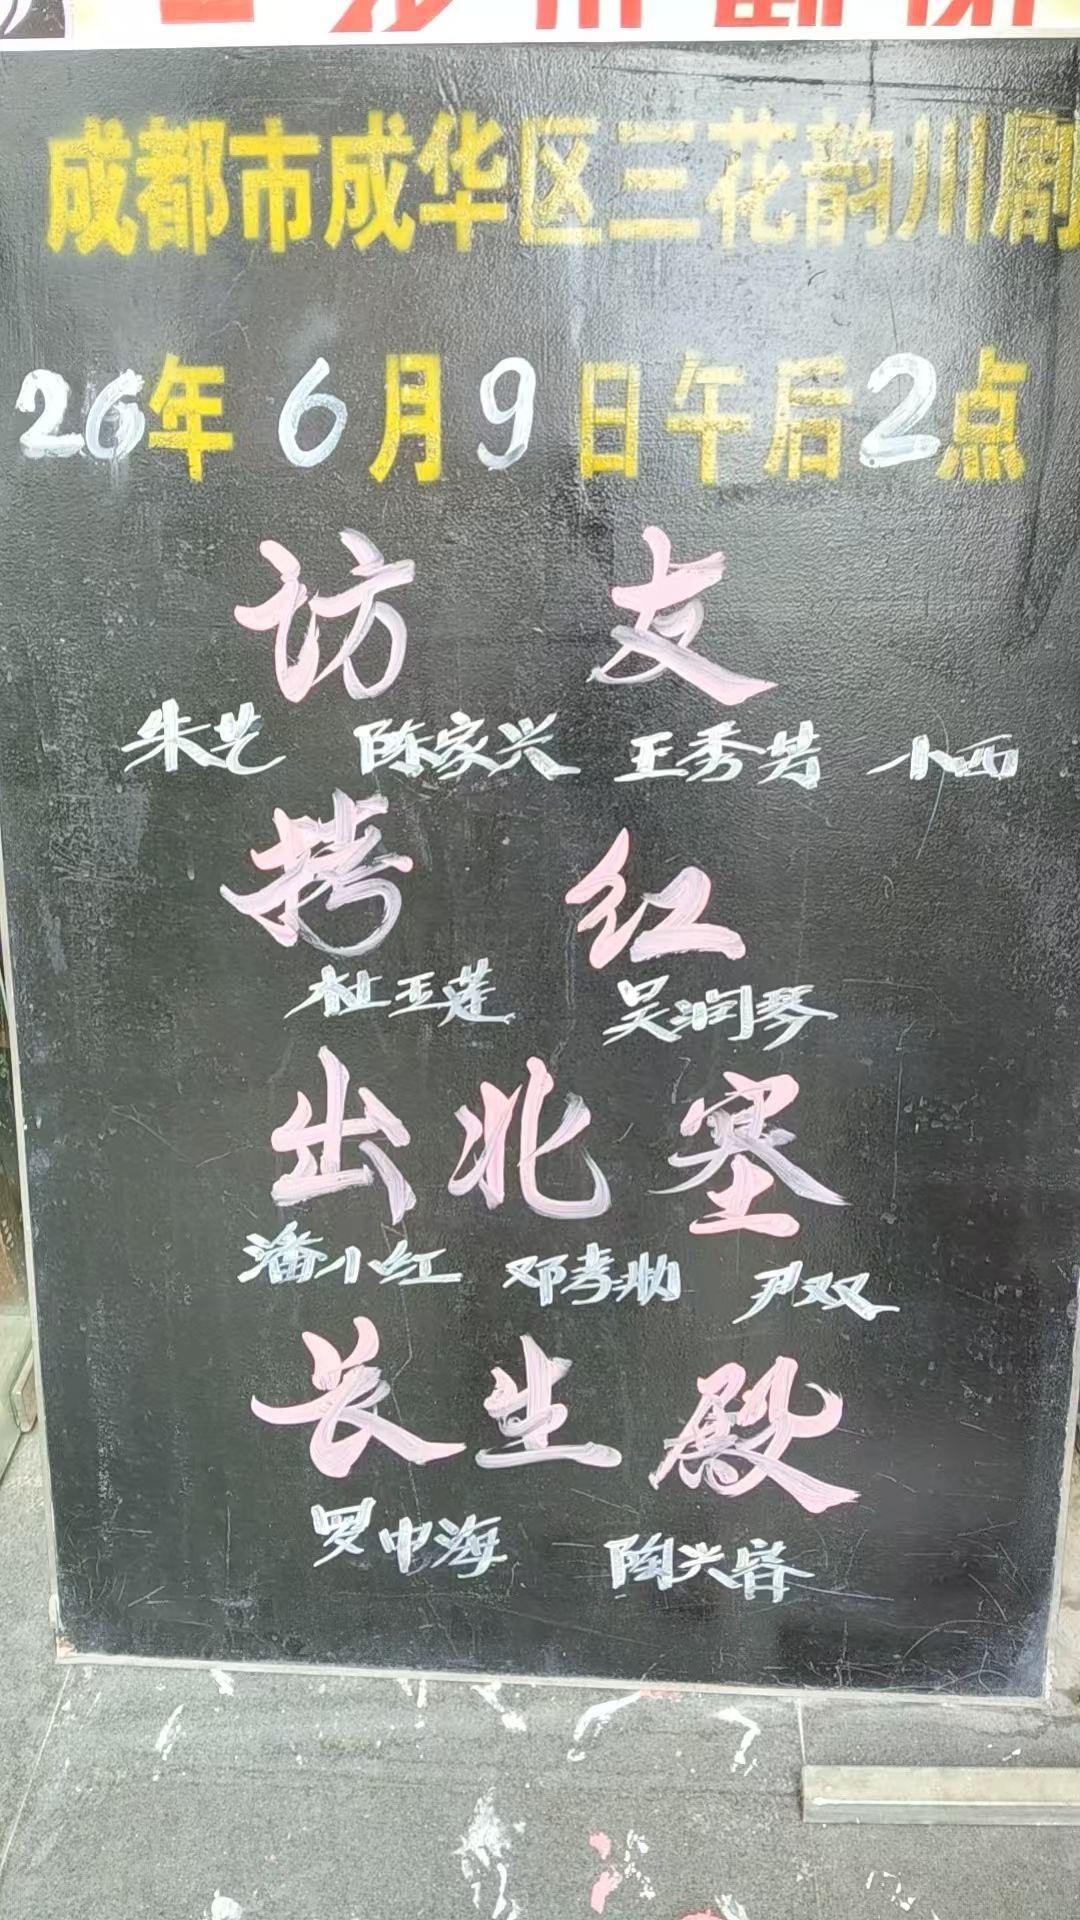 成都市成华区三花韵川剧
26年6月9日午后2点
访友
朱艺 陈家兴 王秀芳 小西
拷红
杜玉莲 吴润琴
出北塞
潘小红 邓孝勋 尹双双
长生殿
罗中海 陶兴容